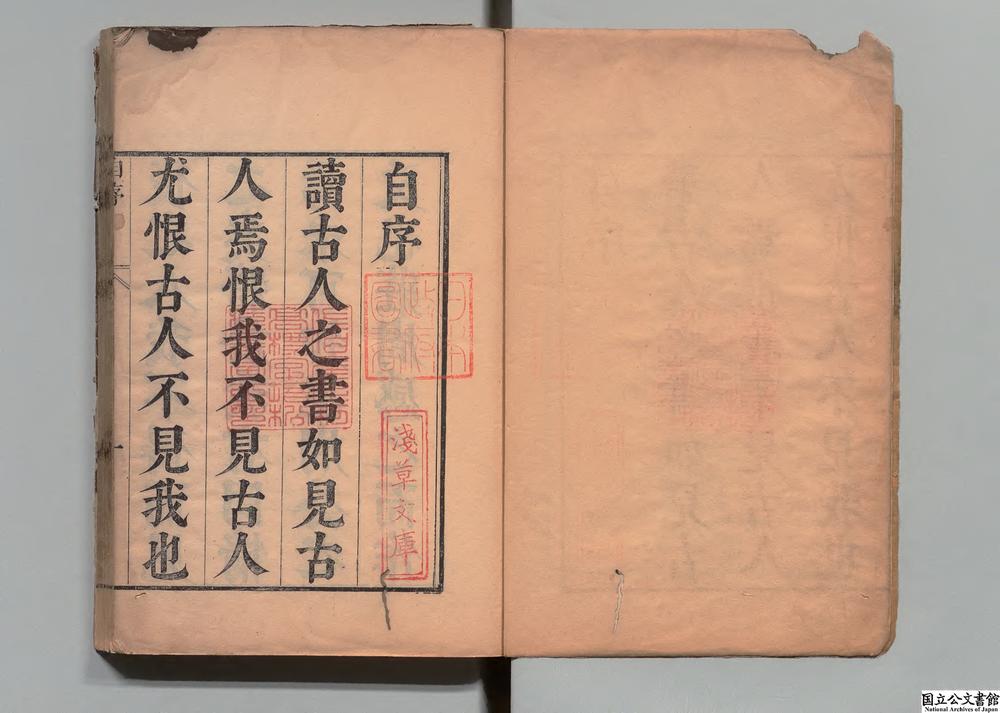 自序
讀古人之書如見古
人焉恨我不見古人
尤恨古人不見我也
自序
一
淺草文庫
国立公文書館
National Archives of Japan